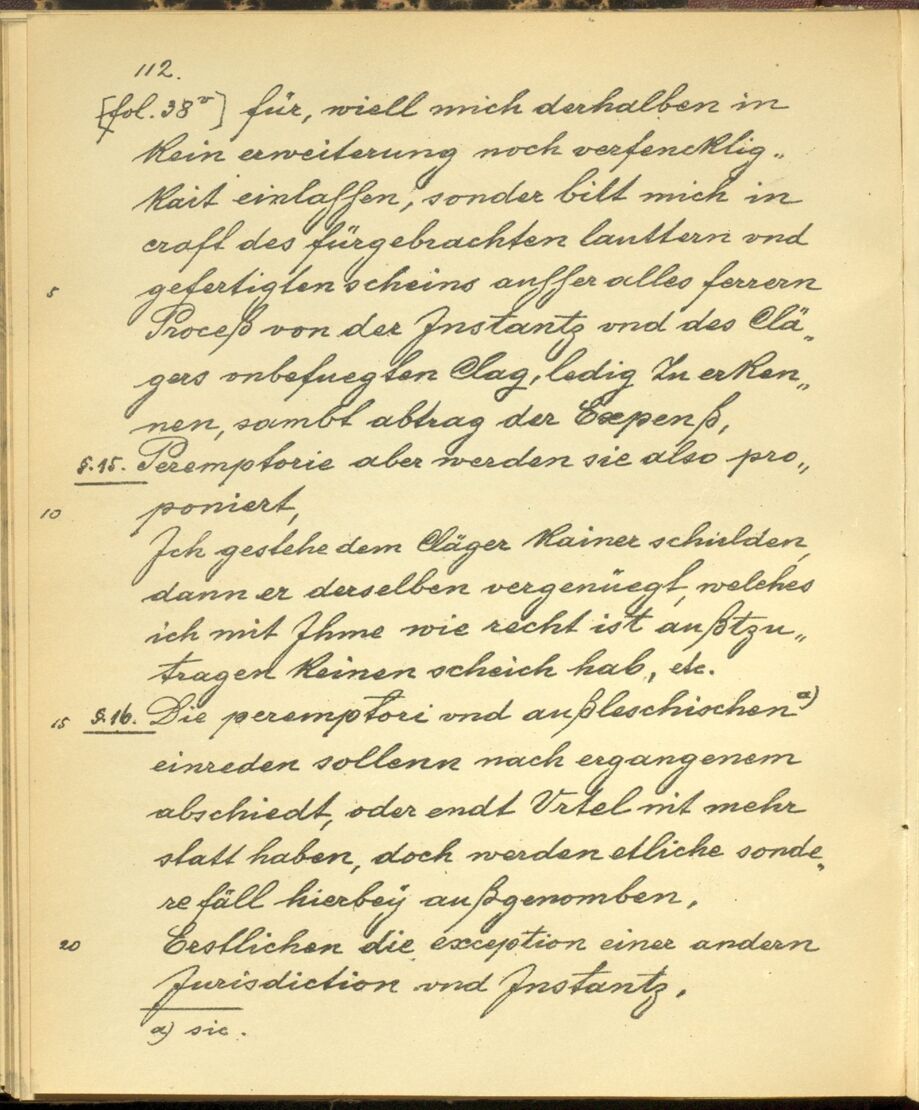 112.
[fol. 38v] für, wiell mich derhalben in
Kein erweiterung noch verfencklig„
Kait einlassen, sonder bitt mich in
craft des fürgebrachten lauttern vnd
5 gefertigten scheins ausser alles ferrern
Proceß von der Jnstantz vnd des Clä„
gers vnbefuegten Clag, ledig Zu erKen„
nen, sambt abtrag der Expenß,
§.15. Peremptorie aber werden sie also pro„
10 poniert,
Jch gestehe dem Cläger Kainer schulden,
dann er derselben vergenüegt, welches
ich mit Jhme wie recht ist außtzu„
tragen Keinen scheich hab, etc.
15 §.16. Die peremptori vnd außleschischen a)
einreden sollenn nach ergangenem
abschiedt, oder endt Vrtel nit mehr
statt haben, doch werden etliche sonde„
re fäll hierbeÿ außgenomben,
20 Erstlichen die exception einer andern
Jurisdiction vnd Jnstantz,
a) sic.